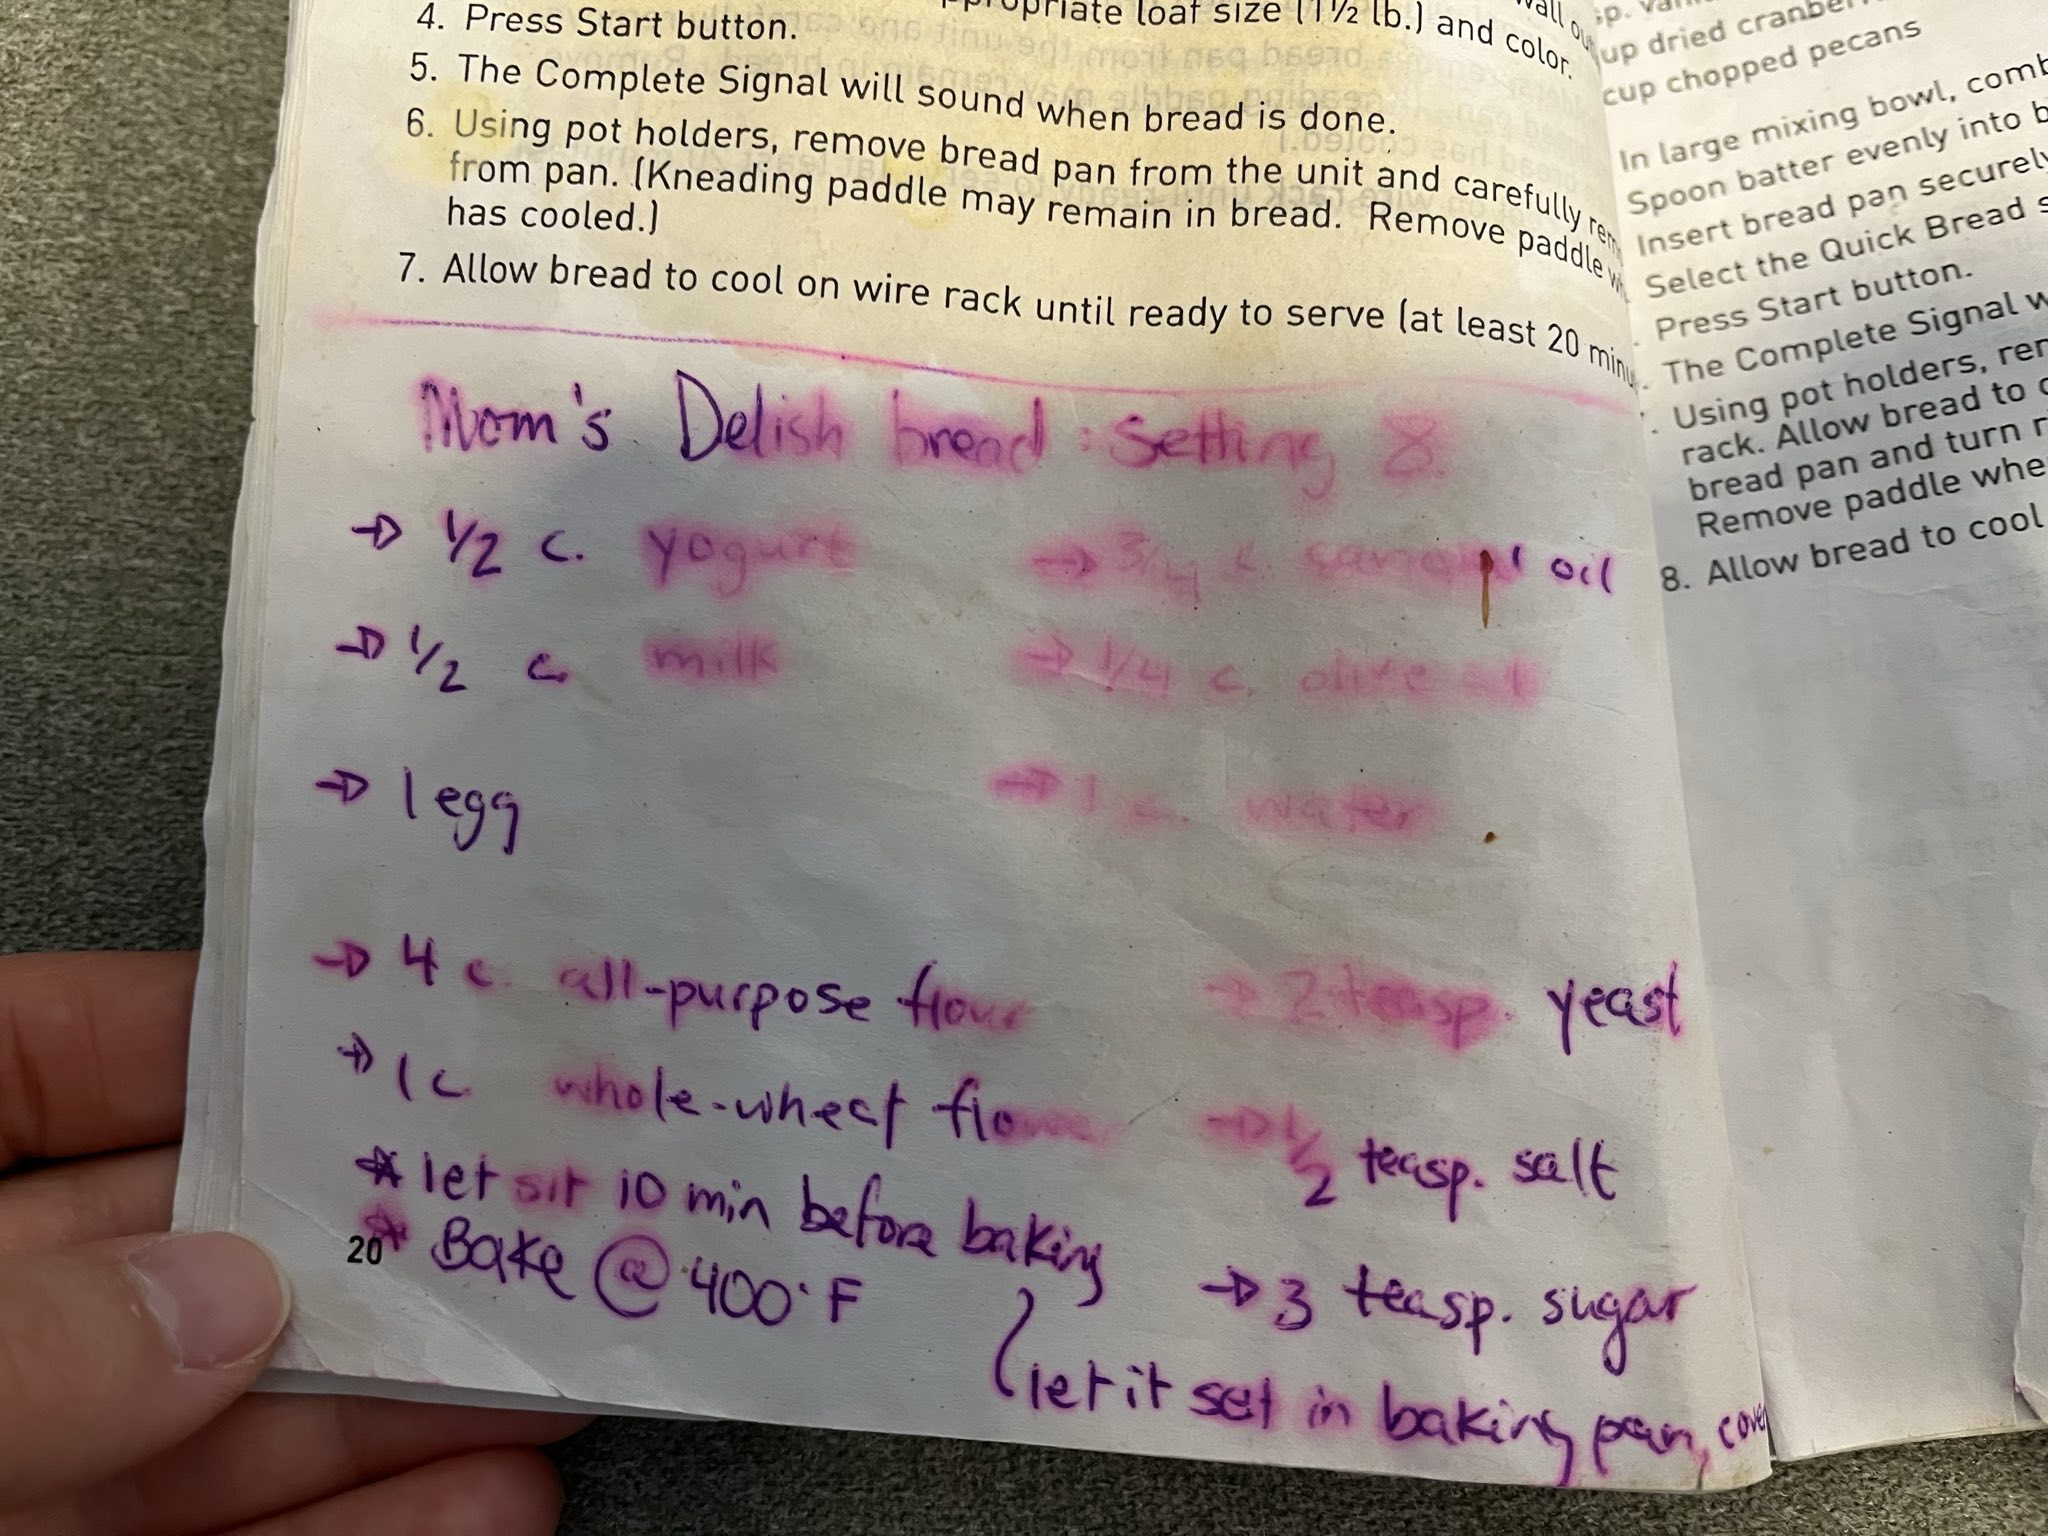 appropriate loaf size (1½ lb.) and color.
4. Press Start button.
5. The Complete Signal will sound when bread is done.
6. Using pot holders, remove bread pan from the unit and carefully
from pan. (Kneading paddle may remain in bread. Remove paddle
has cooled.)
7. Allow bread to cool on wire rack until ready to serve (at least 20
Mom's Delish bread: Setting 8
→ 1/2 c. yogurt
→ 3/4 c. oil
→ 1/2 c. milk
→ 1/4 c. olive oil
→ 1 egg
→ 1 c. water
→ 4 c. all-purpose flour
→ 2 teasp. yeast
→ 1 c. whole-wheat flour
→ 1/2 teasp. salt
* let sit 10 min before baking
* Bake @ 400°F
→ 3 teasp. sugar
let it set in baking pan,
20
dried cranberries
cup chopped pecans
In large mixing bowl,
Spoon batter evenly into
Insert bread pan securely
Select the Quick Bread
Press Start button.
The Complete Signal
Using pot holders,
rack. Allow bread to
bread pan and turn
Remove paddle
8. Allow bread to cool